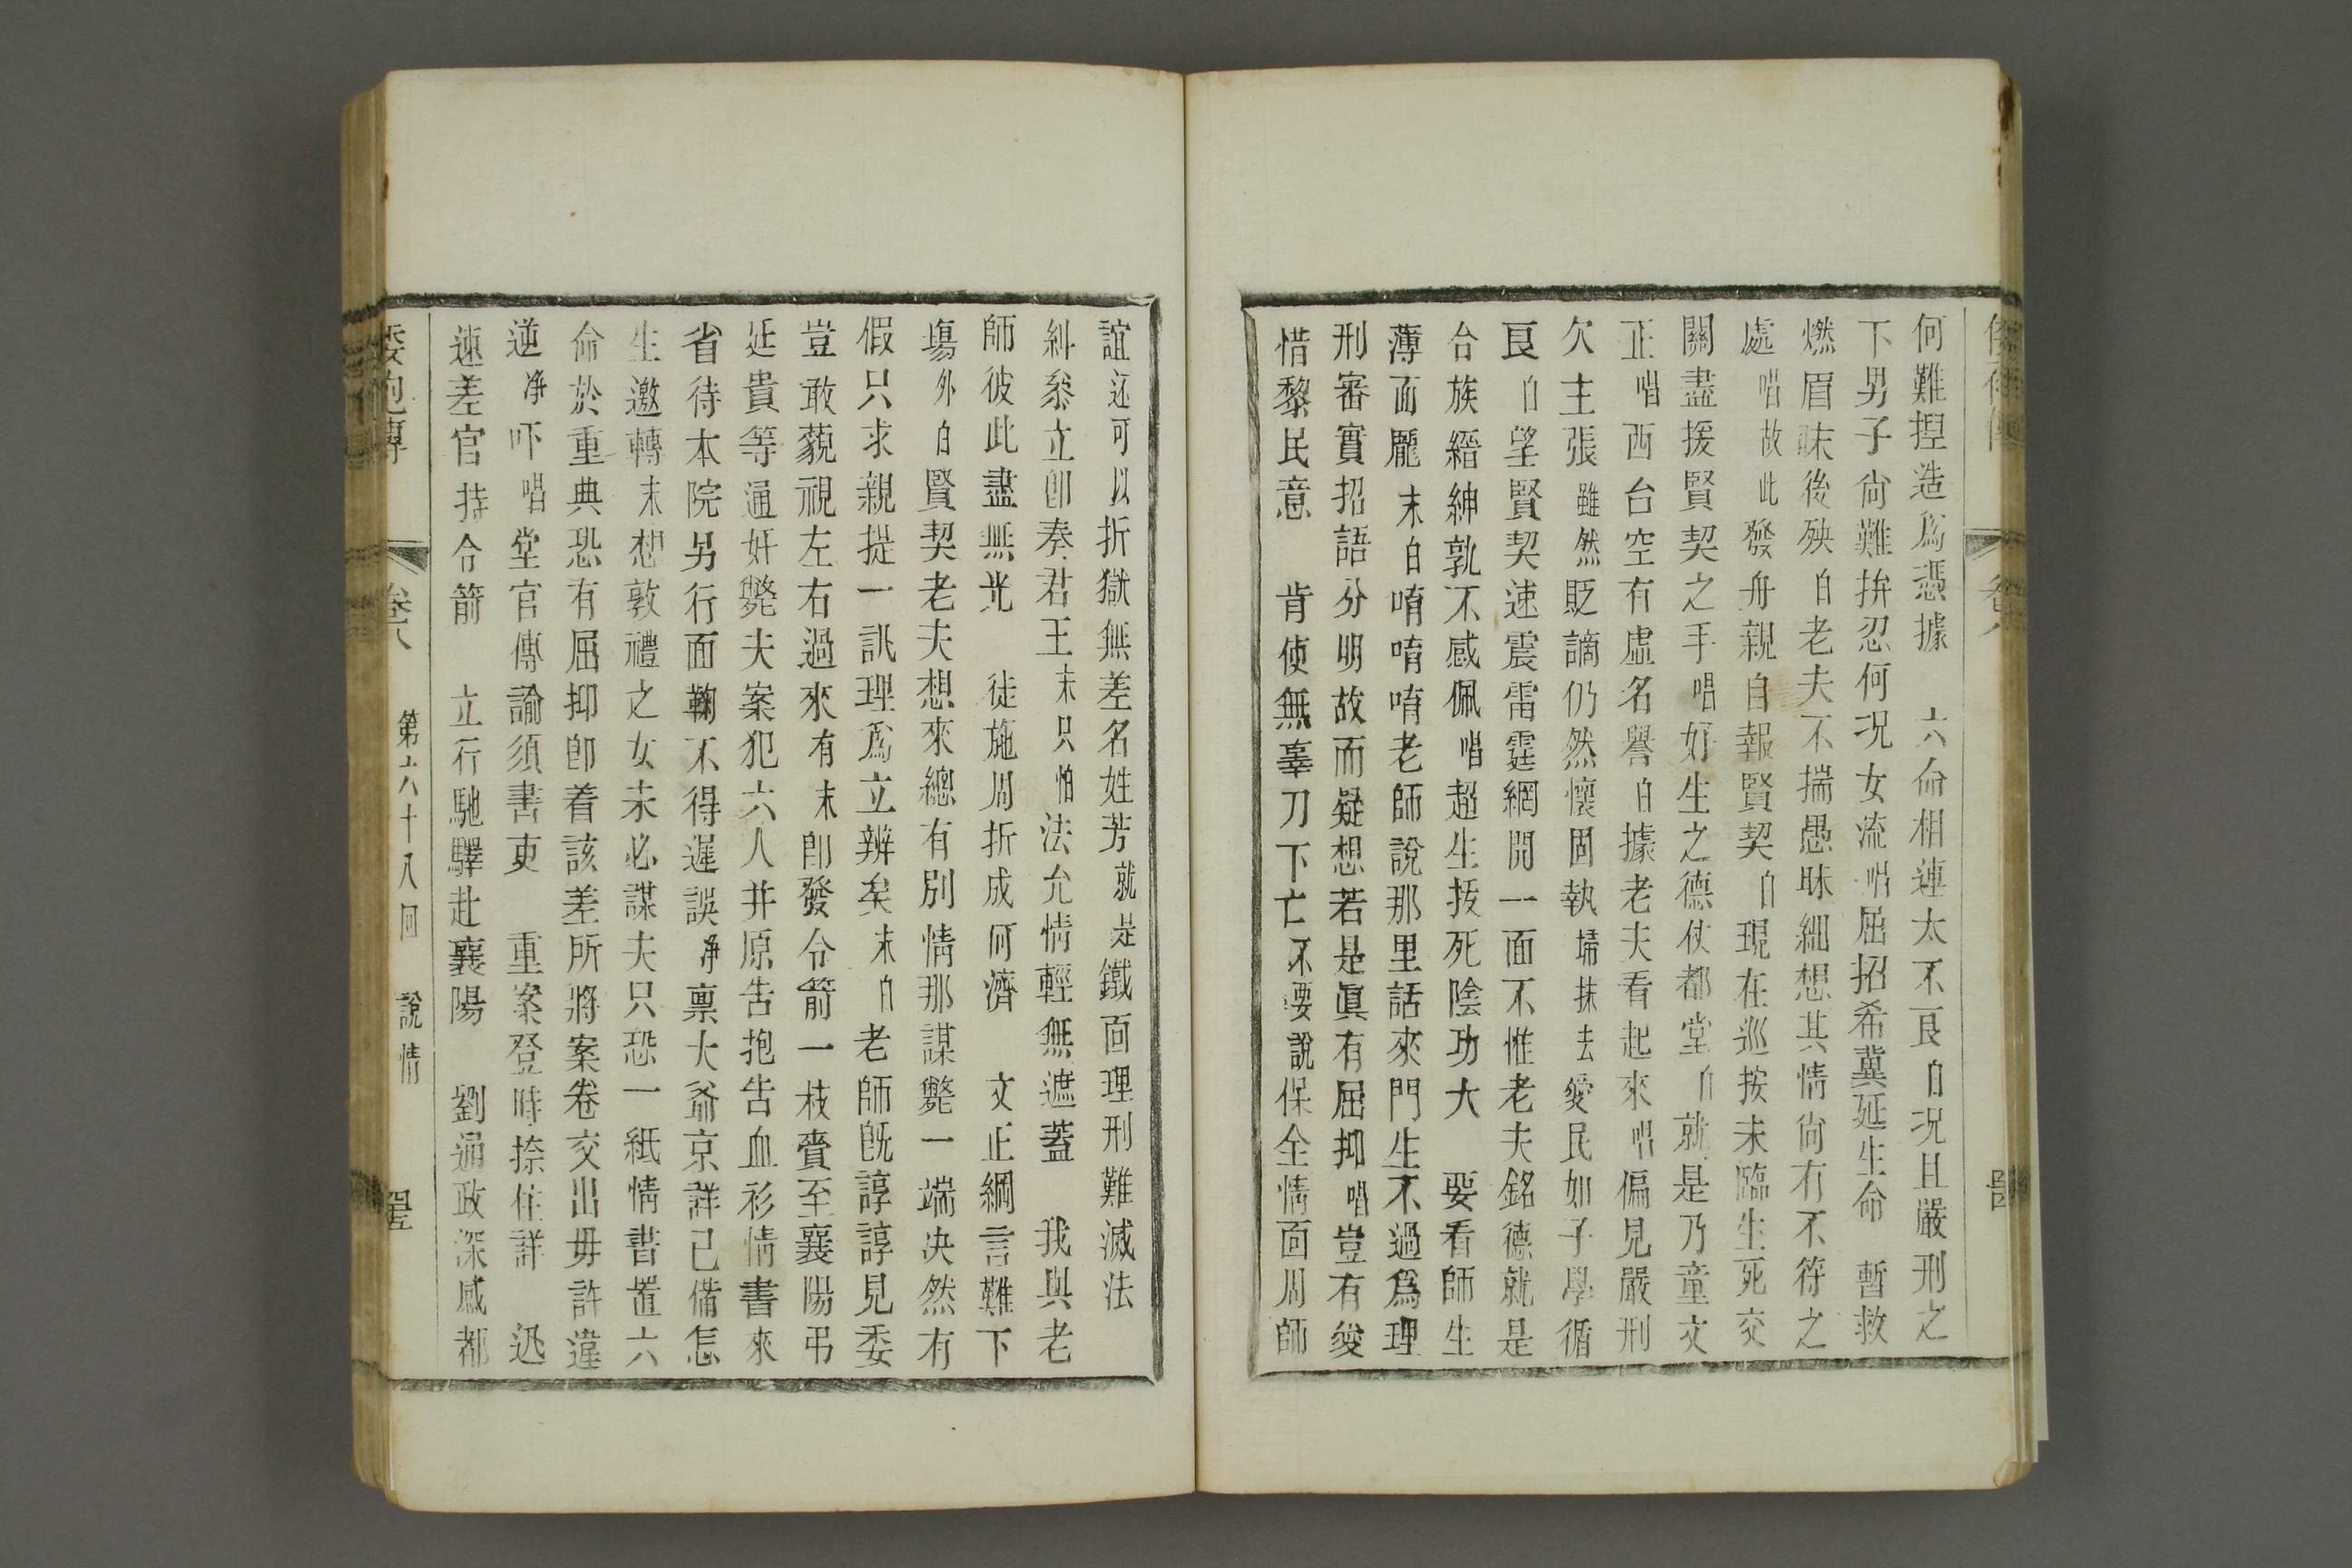 何難揑造爲憑據　六命相連太不良白况且嚴刑之
下男子尙難拚忍何况女流唱屈招希冀延生命　暫救
燃眉昧後殃白老夫不揣愚昧細想其情尙有不符之
處唱故此發舟親自報賢契白現在巡按未臨生死交
關盡援賢契之手唱好生之德仗都堂白就是乃童文
正唱西台空有虛名譽白據老夫看起來唱偏見嚴刑
欠主張雖然貶謫仍然懷固執塲抹去愛民如子學循
良白望賢契速震雷霆網開一面不惟老夫銘德就是
合族縉紳孰不感佩唱超生拔死陰功大　要看師生
薄面龐末白唷唷唷老師說那里話來門生不過爲理
刑審實招語分明故而疑想若是眞有屈抑唱豈有從
惜黎民意　肯使無辜刀下亡不要說保全情面周師
誼还可以折獄無差名姓芳就是鐵面理刑難滅法
糾叅立卽奏君王末只怕法允情輕無遮蓋　我與老
師彼此盡無光　徒施周折成何濟　文正綱言難下
塲外白賢契老夫想來總有別情那謀斃一端决然有
假只求親提一訊理爲立辨矣末白老師旣諄諄見委
豈敢藐視左右過來有末卽發令箭一枝賫至襄陽弔
延貴等通奸斃夫案犯六人并原吿抱吿血衫情書來
省待本院另行面鞠不得遲誤净稟大爺京詳已備怎
生邀轉末想敦禮之女未必謀夫只恐一紙情書置六
命於重典恐有屈抑卽着該差所將案卷交出毋許違
逆净吓唱堂官傳諭須書吏　重案登時捺住詳　迅
速差官持令箭　立行馳驛赴襄陽　劉通政深感都
倭袍傳　卷八　第六十八回　說情